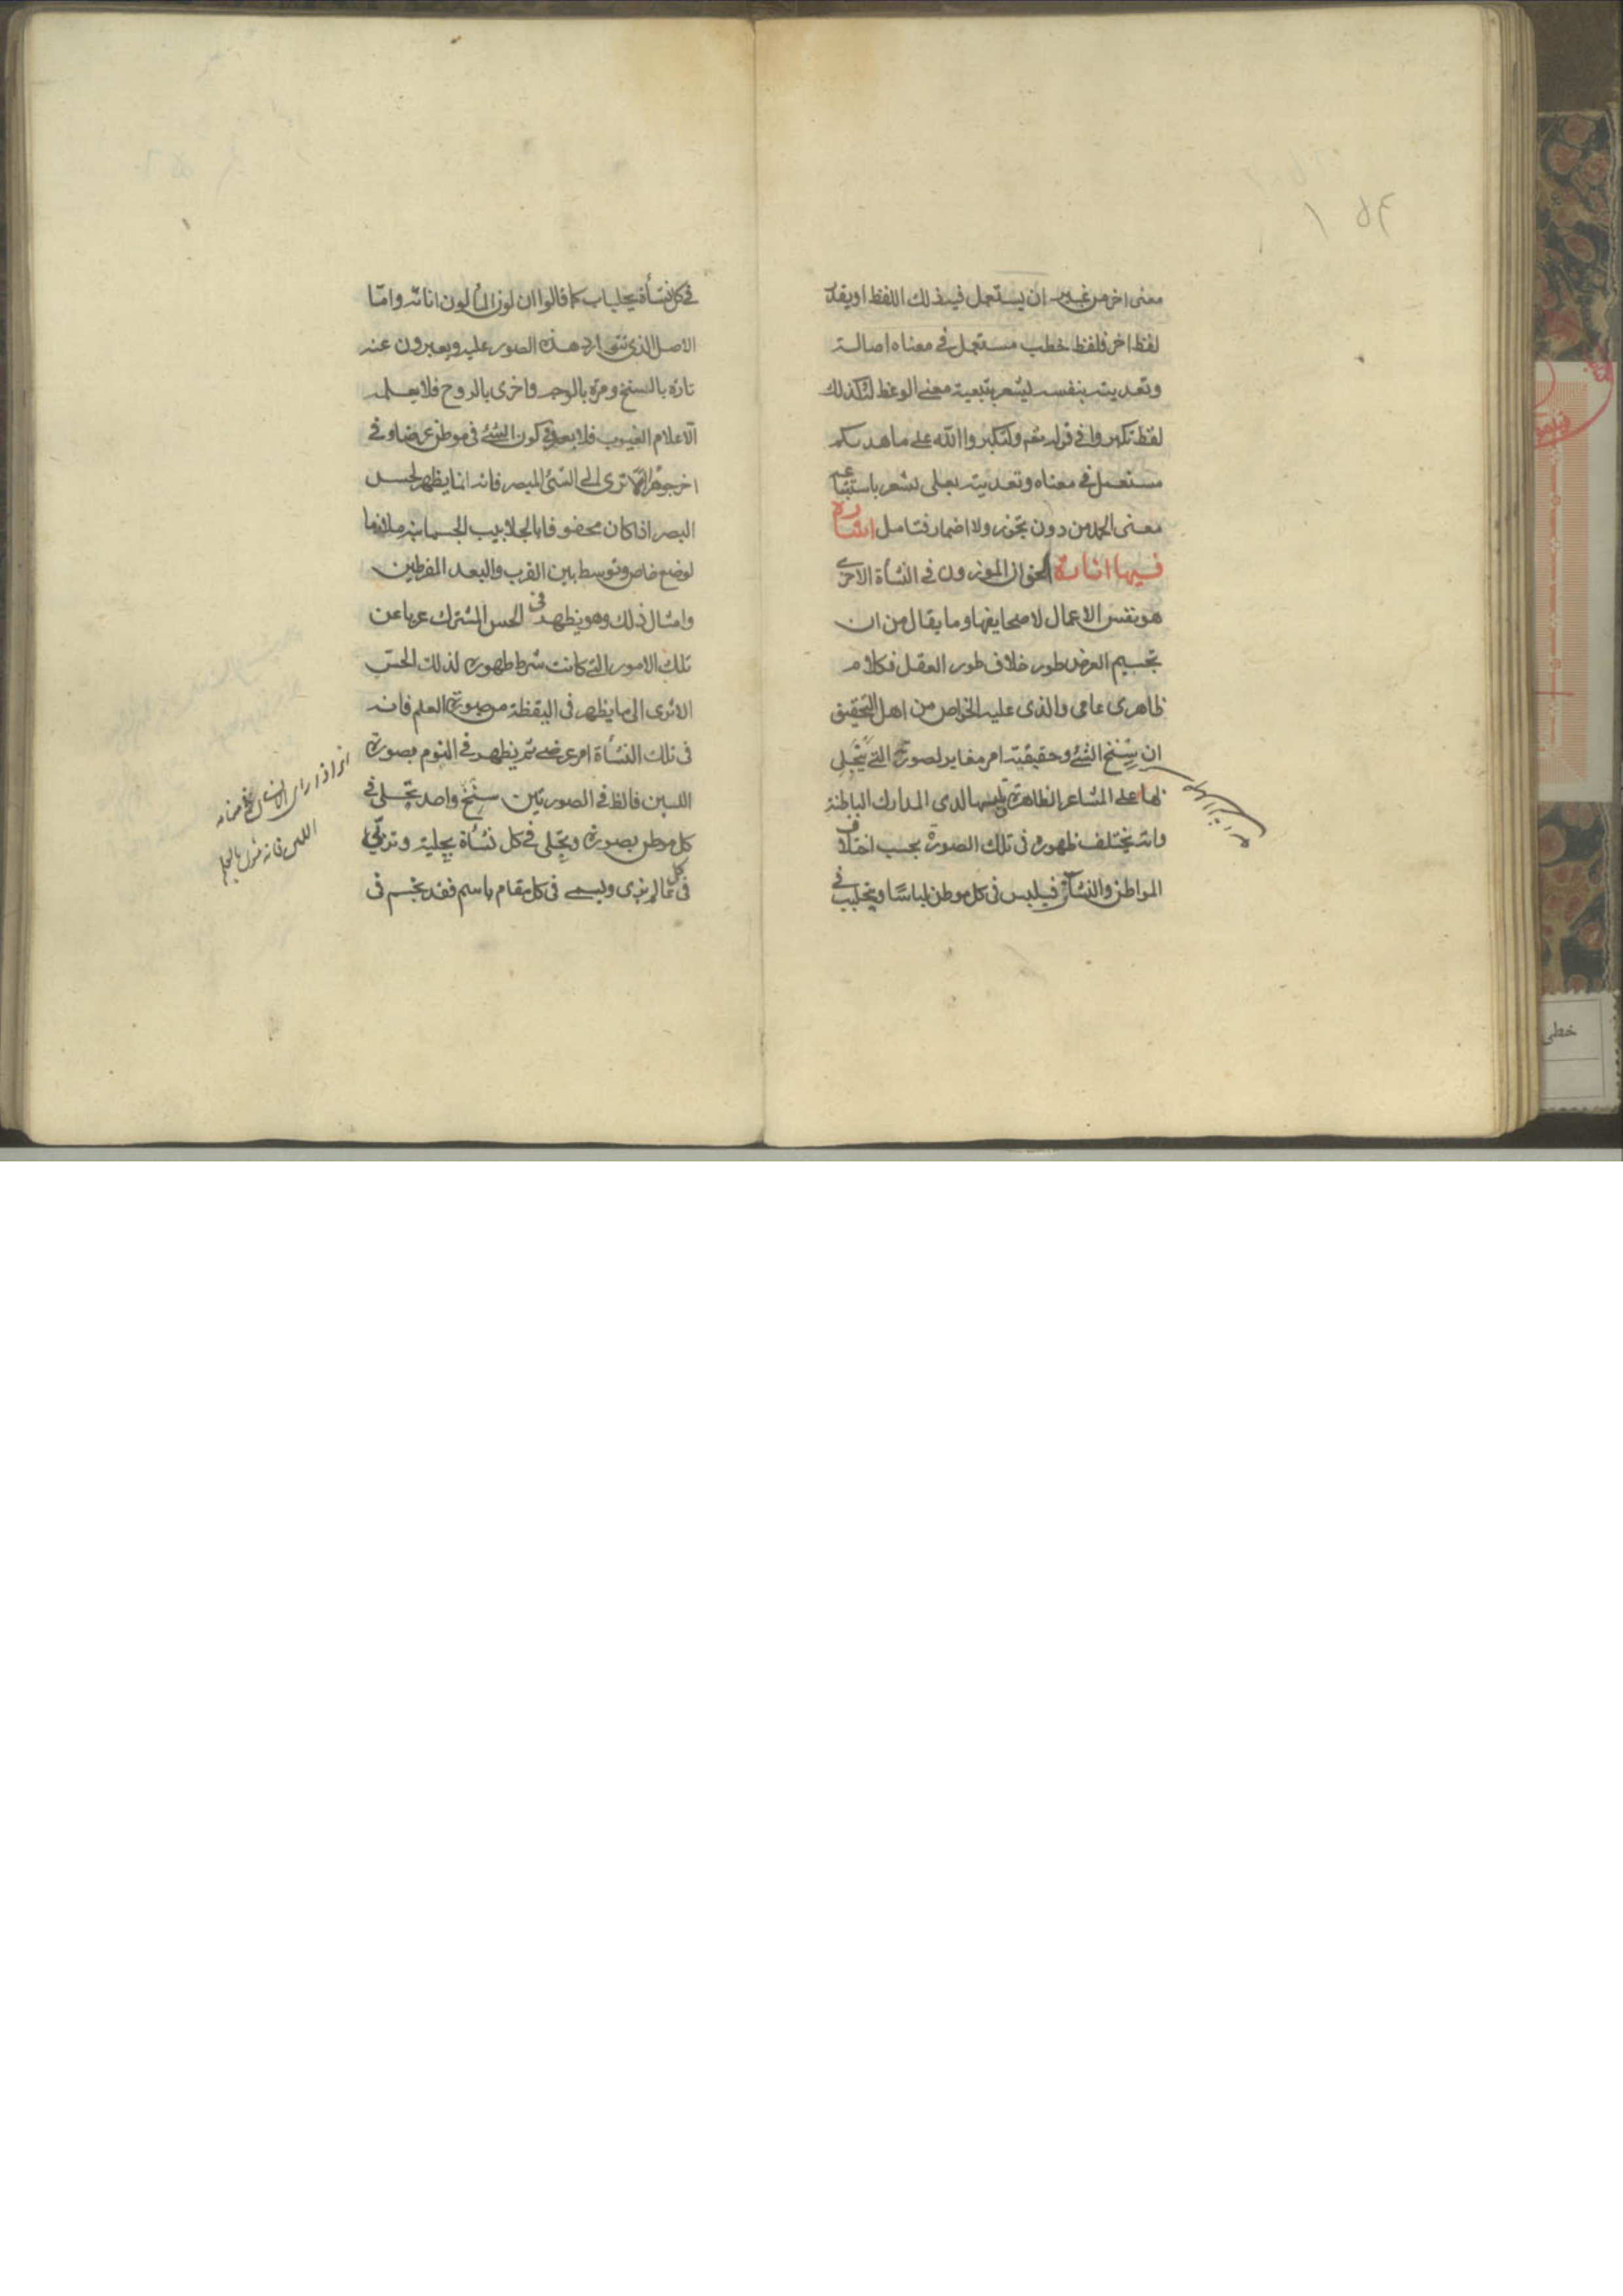 معنى اخر من غير ان يستعمل فيه ذلك اللفظ او يقدر
لفظ اخر فلفظ خطب مستعمل فى معناه اصالة
وتعديته بنفسه ليشعر بتبعية معنى الوعظ لكذلك
لفظ تكبروا فى قوله تعم ولتكبروا الله على ما هديكم
مستعمل فى معناه وتعديته بعلى يشعر باستتباعه
معنى الحمد من دون تجوز ولا اضمار فتامل اشارة
فيها انارة الحق ان الموزون فى النشاة الاخرى
هو نفس الاعمال لا صحايفها وما يقال من ان
تجسيم العرض طور خلاف طور العقل فكلام
ظاهرى عامى والذى عليه الخواص من اهل التحقيق
ان سنخ الشئ وحقيقيته امر مغاير لصورته التى يتجلى
بها على المشاعر الظاهرة ويلبسها لدى المدارك الباطنة
وانه يختلف ظهوره فى تلك الصورة بحسب اختلاف
المواطن والنشآت فيلبس فى كل موطن لباسًا ويتجلبب فى
فى كل نشأة بجلباب كما قالوا ان لون الماء لون انائه واما
الاصل الذى تتوارد هذه الصور عليه ويعبرون عنه
تارة بالسنخ ومرة بالوجه واخرى بالروح فلا يعلمه
الا علام الغيوب فلا بعد فى كون الشئ فى موطن عرضا وفى
اخر جوهرا الا ترى الى الشئ المبصر فانه انما يظهر لحس
البصر اذا كان محفوفا بالجلابيب الجسمانية ملازما
لوضع خاص وتوسط بين القرب والبعد المفرطين
وامثال ذلك وهو يظهر فى الحس المشترك عريا عن
تلك الامور التى كانت شرط ظهوره لذلك الحس
الا ترى الى ما يظهر فى اليقظة من صورة العلم فانه
فى تلك النشأة امر عرضى ثم يظهر فى النوم بصورة
اللبن فالظ فى الصورتين سنخ واحد تجلى فى
كل موطن بصورة وتحلى فى كل نشأة بحلية وتزيى
فى كل عالم بزى ويسمى فى كل مقام باسم فقد تجسم فى